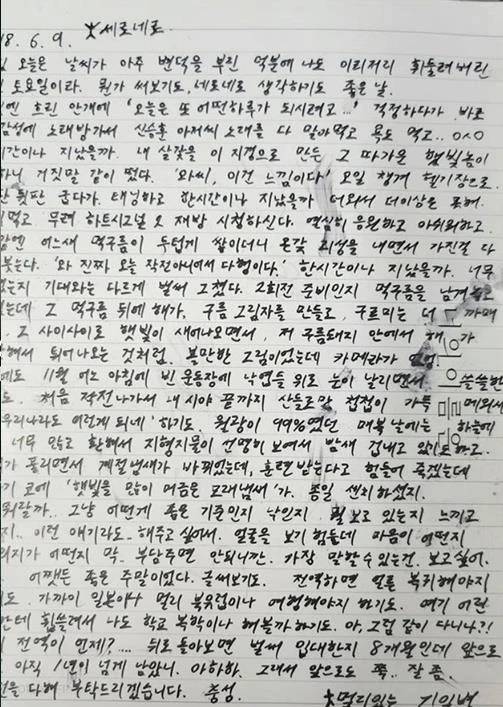 18. 6. 9. 大세로네로
오늘은 날씨가 아주 변덕을 부린 덕분에 나도 이리저리 휘둘려버린
토요일이라. 뭔가 써보기도, 네로네로 생각하기도 좋은 날.
흐린 안개에 '오늘은 또 어떤하루가 되시려고...' 걱정하다가 바로
감성에 노래방가서 신승훈 아저씨 노래를 다 잡아먹고 욕도 먹고.. ㅇㅅㅇ
시간이나 지났을까. 내 살갗을 이 지경으로 만든 그 따가운 햇빛놈이
거짓말 같이 떴다. '와씨, 이건 느낌이다' 오일 챙겨 헬기장으로
한 뒷판 굽다가. 태닝하고 한시간이나 지났을까 더워서 더이상은 못해.
먹고 무려 하트시그널 2 재방 시청하신다. 열심히 응원하고 아쉬워하고.
어느새 먹구름이 두텁게 쌓이더니 온갖 괴성을 내면서 가진걸 다
붓는다. '와 진짜 오늘 작전아니여서 다행이다.' 한시간이나 지났을까. 너무
기대와는 다르게 벌써 그쳤다. 2회전 준비인지 먹구름을 남겨놓고
있는데 그 먹구름 뒤에 해가. 구름 그림자를 만들고, 구르미는 더 까매
. 그 사이사이로 햇빛이 새어나오면서, 저 구름돼지 안에서 해가
해서 튀어나오는 것처럼. 볼만한 그림이었는데 카메라가
에도 11월 어느 아침에 빈 운동장에 낙엽들 위로 눈이 날리면서 쓸쓸한
도. 처음 작전나가서 내 시야 끝까지 산들로만 첩첩이 가득 메워서
우리나라도 이렇게 되네' 하기도. 월광이 99%였던 매복날에는 하늘에
너무 많고 환해서 지형지물이 선명히 보여서 밤새 겁내고 있기도하고.
가 풀리면서 계절냄새가 바뀌었는데, 훈련받는다고 힘들어 죽겠는데
기 코에 '햇빛을 많이 머금은 모래냄새'가. 종일 센치하셨지.
뭐랄까.. 그냥 어떻게 좋은 기준인지 낙인지. 뭘 보고 있는지 느끼고
지.. 이런 얘기라도.. 해주고 싶어서. 얼굴을 보기 힘든데 마음이 어떤지
의지가 어떤지 막. 부담주면 안되니깐. 가장 말할수 있는건. 보고싶어.
어쨌든 좋은 주말이었다. 글써보기도. 전역하면 얼른 복귀해야지
도. 가까이 일본이나 멀리 북유럽이나 여행해야지 하기도. 여기 어린
한테 휩쓸려서 나도 학교 복학이나 해볼까하기도. 아, 그럼 같이 다니나?!
전역이 언제?.... 뒤로 돌아보면 벌써 입대한지 8개월인데 앞으로
아직 1년이 넘게 남았니. 아하하. 그래서 앞으로도 쭉. 잘 좀.
을 다해 부탁드리겠습니다. 충성.
大멀리있는 기일병